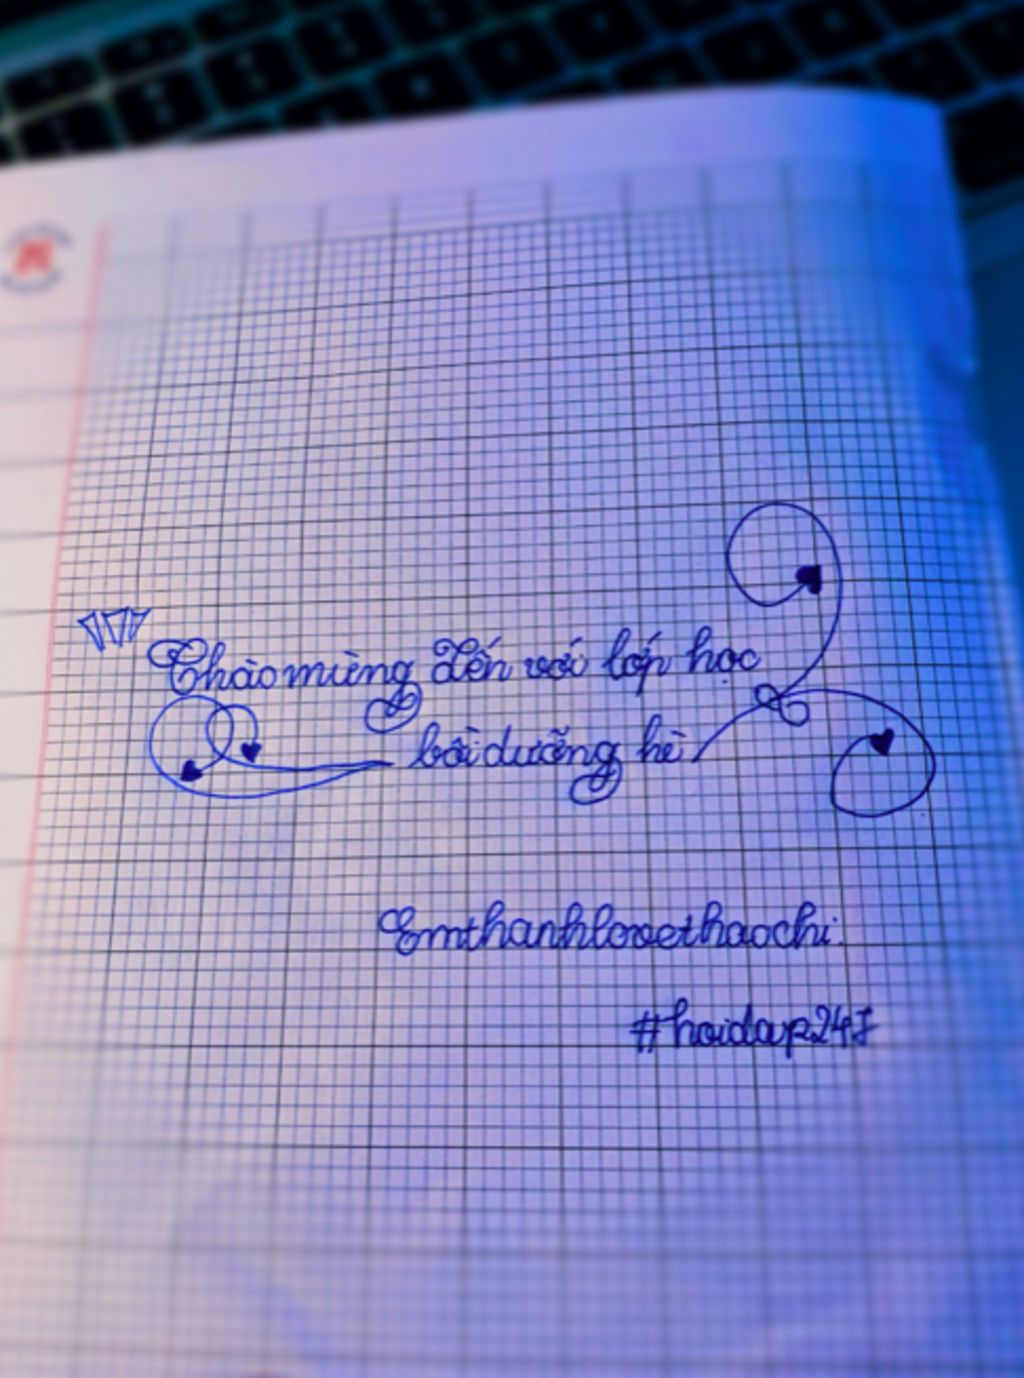 Chào mừng đến với lớp học
bồi dưỡng hè
Emthanhlovethaochi.
#hoidap247